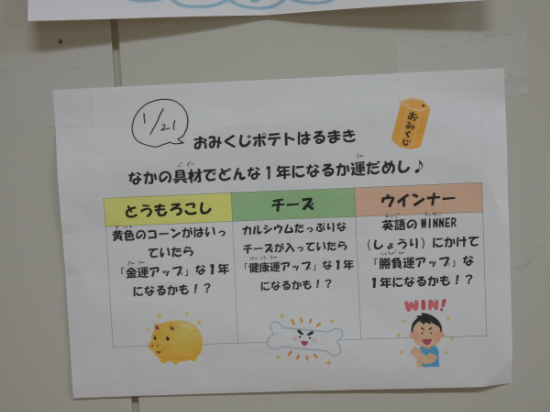 1/21
おみくじ
おみくじポテトはるまき
なかの具材でどんな1年になるか運だめし♪
とうもろこし
黄色のコーンがはいっ
ていたら
「金運アップ」な1年
になるかも!?
チーズ
カルシウムたっぷりな
チーズが入っていたら
「健康運アップ」な1年
になるかも!?
ウインナー
英語のWINNER
(しょうり)にかけて
「勝負運アップ」な
1年になるかも!?
WIN!